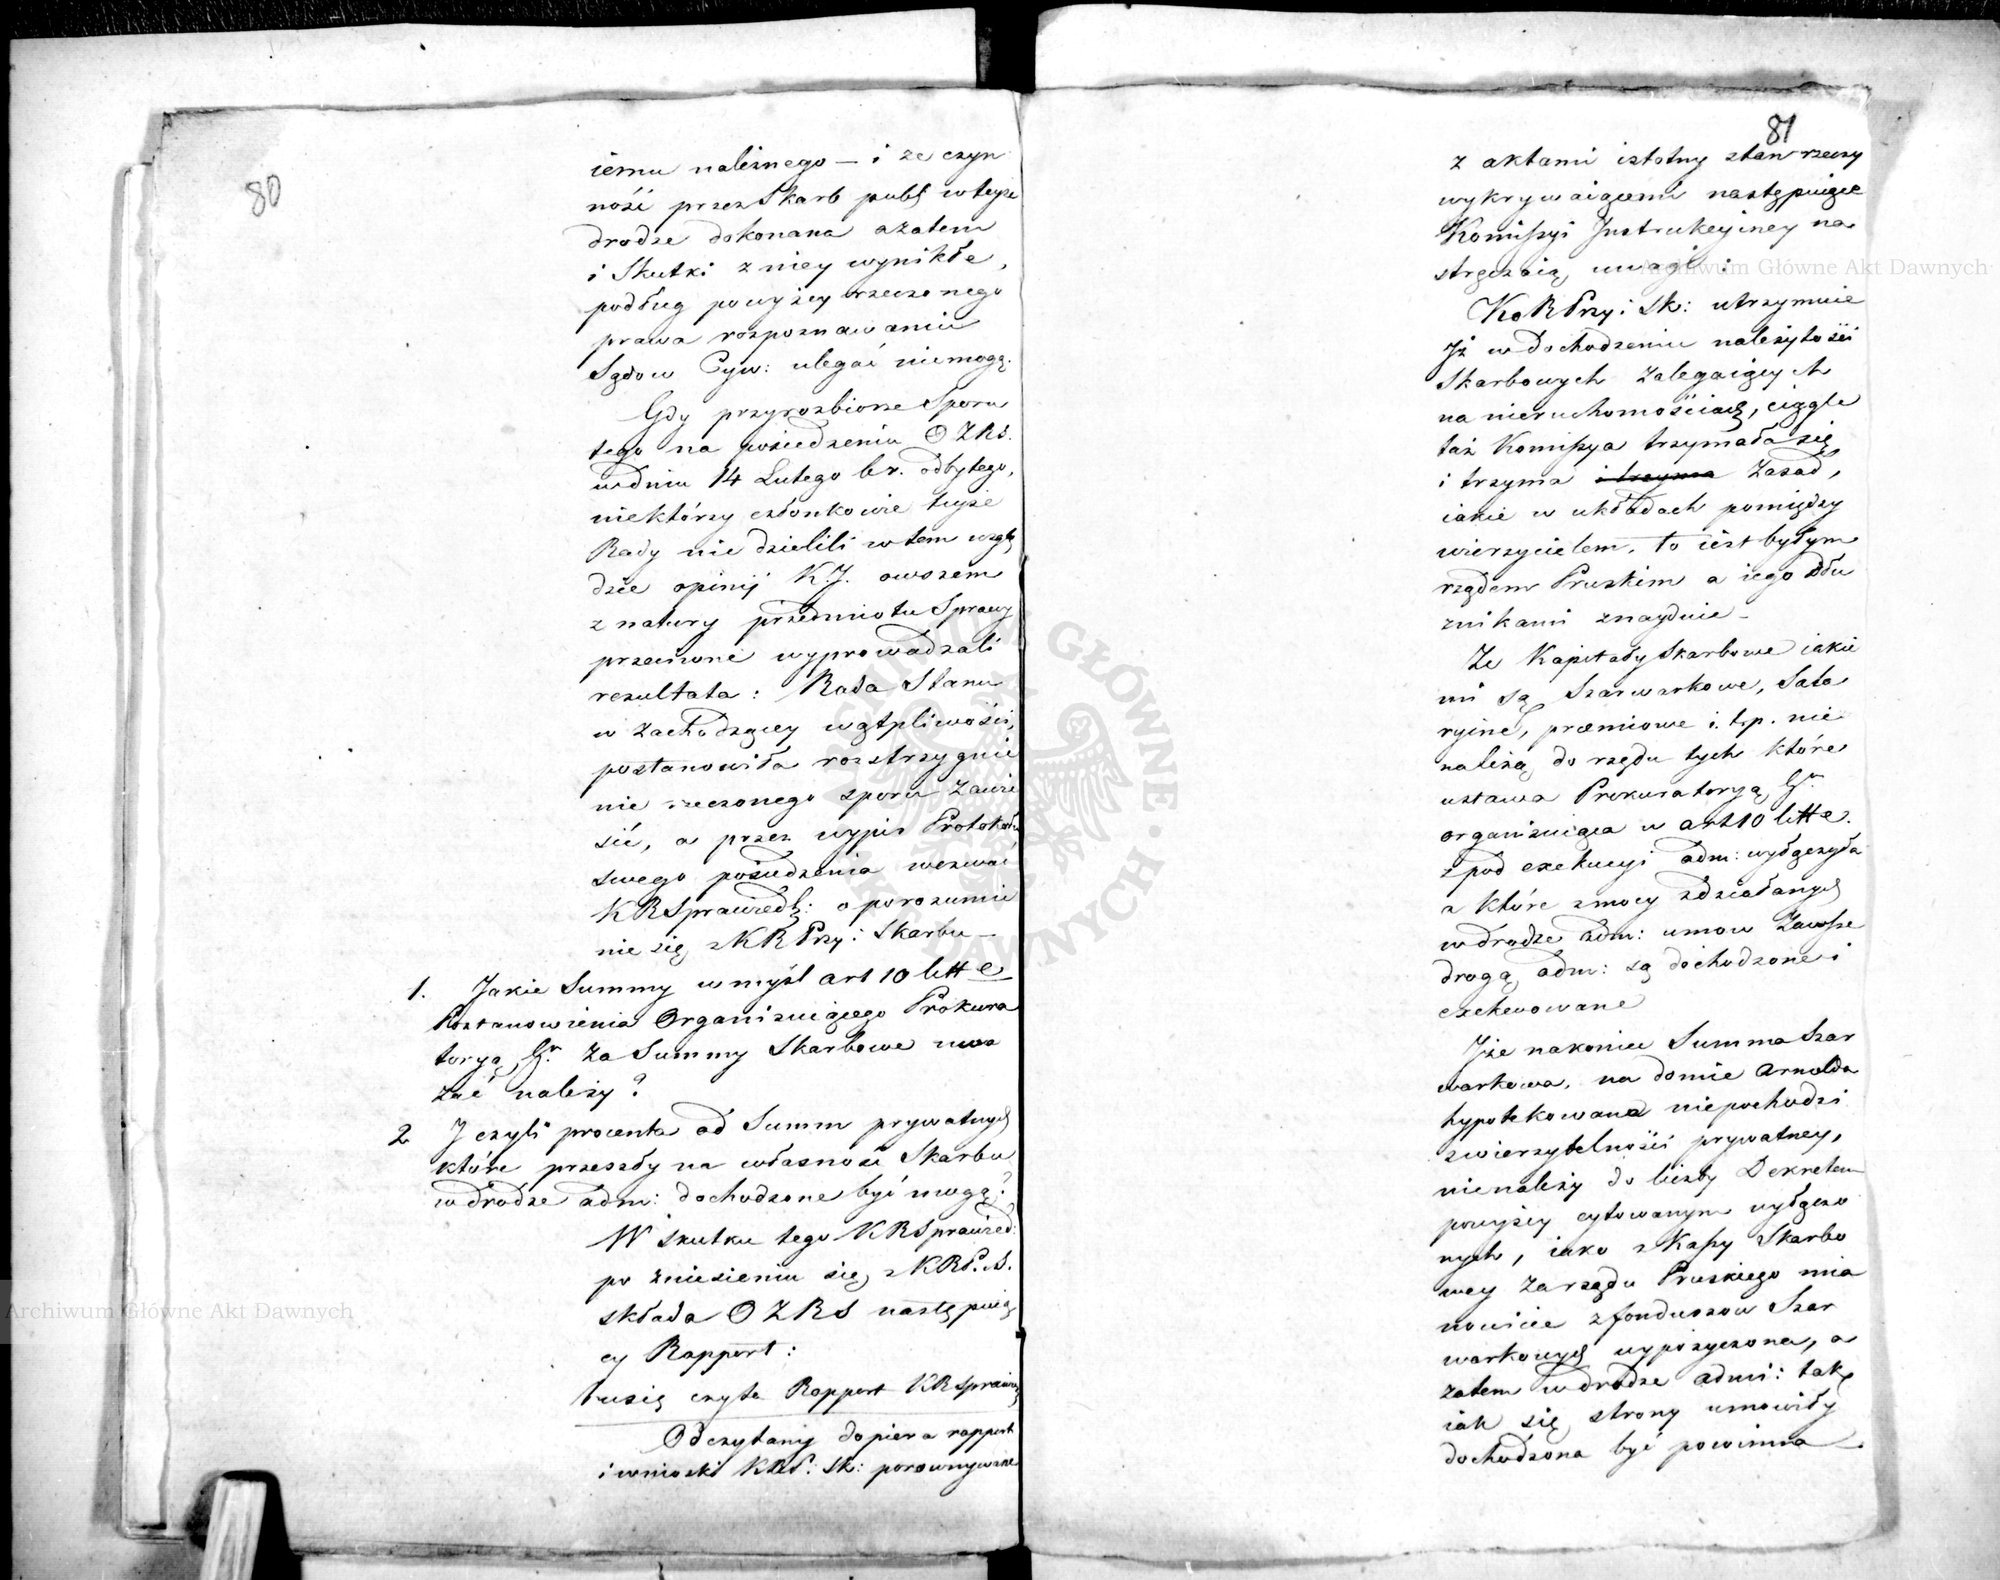 80
iemu należnego — i że czyn
ność przez Skarb publ w teyże
drodze dokonana a zatem
i Skutki z niey wynikłe,
podług powyżey rzeczonego
prawa rozpoznawaniu
Sądow Cyw: ulegać niemogą.
Gdy przy rozbiorze Sporu
tego na posiedzeniu OZRS.
w dniu 14 Lutego b. r. odbytego,
niektórzy członkowie teyże
Rady nie dzielili w tem wzglę
dzie opinij K.J. owszem
z natury przedmiotu Sprawy
przeciwne wyprowadzali
rezultata: Rada Stanu
w zachodzącey wątpliwości,
postanowiła rozstrzygnie
nie rzeczonego sporu zawie
sić, a przez wypis Protokołu
swego posiedzenia wezwać
KRSprawiedl: o porozumie
nie się z KRPrzy: Skarbu —
1. Jakie Summy w myśl art 10 litt e
Postanowienia Organizuiącego Prokura
toryą Gn. za Summy Skarbowe uwa
żać należy?
2 J czyli procenta od Summ prywatnych
które przeszły na własność Skarbu
w drodze adm: dochodzone być mogą?
W skutku tego KRSprawied:
po zniesieniu się z KRP.S.
składa OZRS następuią
cy Rapport:
tu się czyta Rapport KRSprawied
Odczytany dopiero rapport
i wnioski KRP: Sk: porownywane
81
z aktami istotny stan rzeczy
wykrywaiącemi następuiące
Komissyi Jnstrukcyiney na
stręczaią uwagi:
KoRPrzy: Sk: utrzymuie
Jż w dochodzeniu należytości
Skarbowych zalegaiących
na nieruchomościach, ciągle
taż Komissya trzymała się
i trzyma i trzyma zasad,
iakie w układach pomiędzy
wierzycielem, to iest byłym
rządem Pruskim a iego dłu
żnikami znayduie —
Że Kapitały Skarbowe iakie
mi są Szarwarkowe, Sala
ryine, præmiowe i. t. p. nie
należą do rzędu tych które
ustawa Prokuratoryą Gn.
organizuiąca w art 10 litt e.
z pod exekucyi adm: wyłączyła
a które z mocy zdziałanych
w drodze adm: umow zawsze
drogą adm: są dochodzone i
exekwowane
Jże nakoniec Summa Szar
warkowa, na domie Arnolda
hypotekowana niepochodzi
z wierzytelności prywatney,
nienależy do liczby Dekretem
powyżey cytowanym wyłączo
nych, iako z Kassy Skarbo
wey za rządu Pruskiego mia
nowicie z funduszow Szar
warkowych wypożyczona, a
zatem w drodze admi: tak
iak się strony umowiły
dochodzona być powinna —
Archiwum Główne Akt Dawnych
Archiwum Główne Akt Dawnych
ARCHIWUM GŁÓWNE AKT DAWNYCH